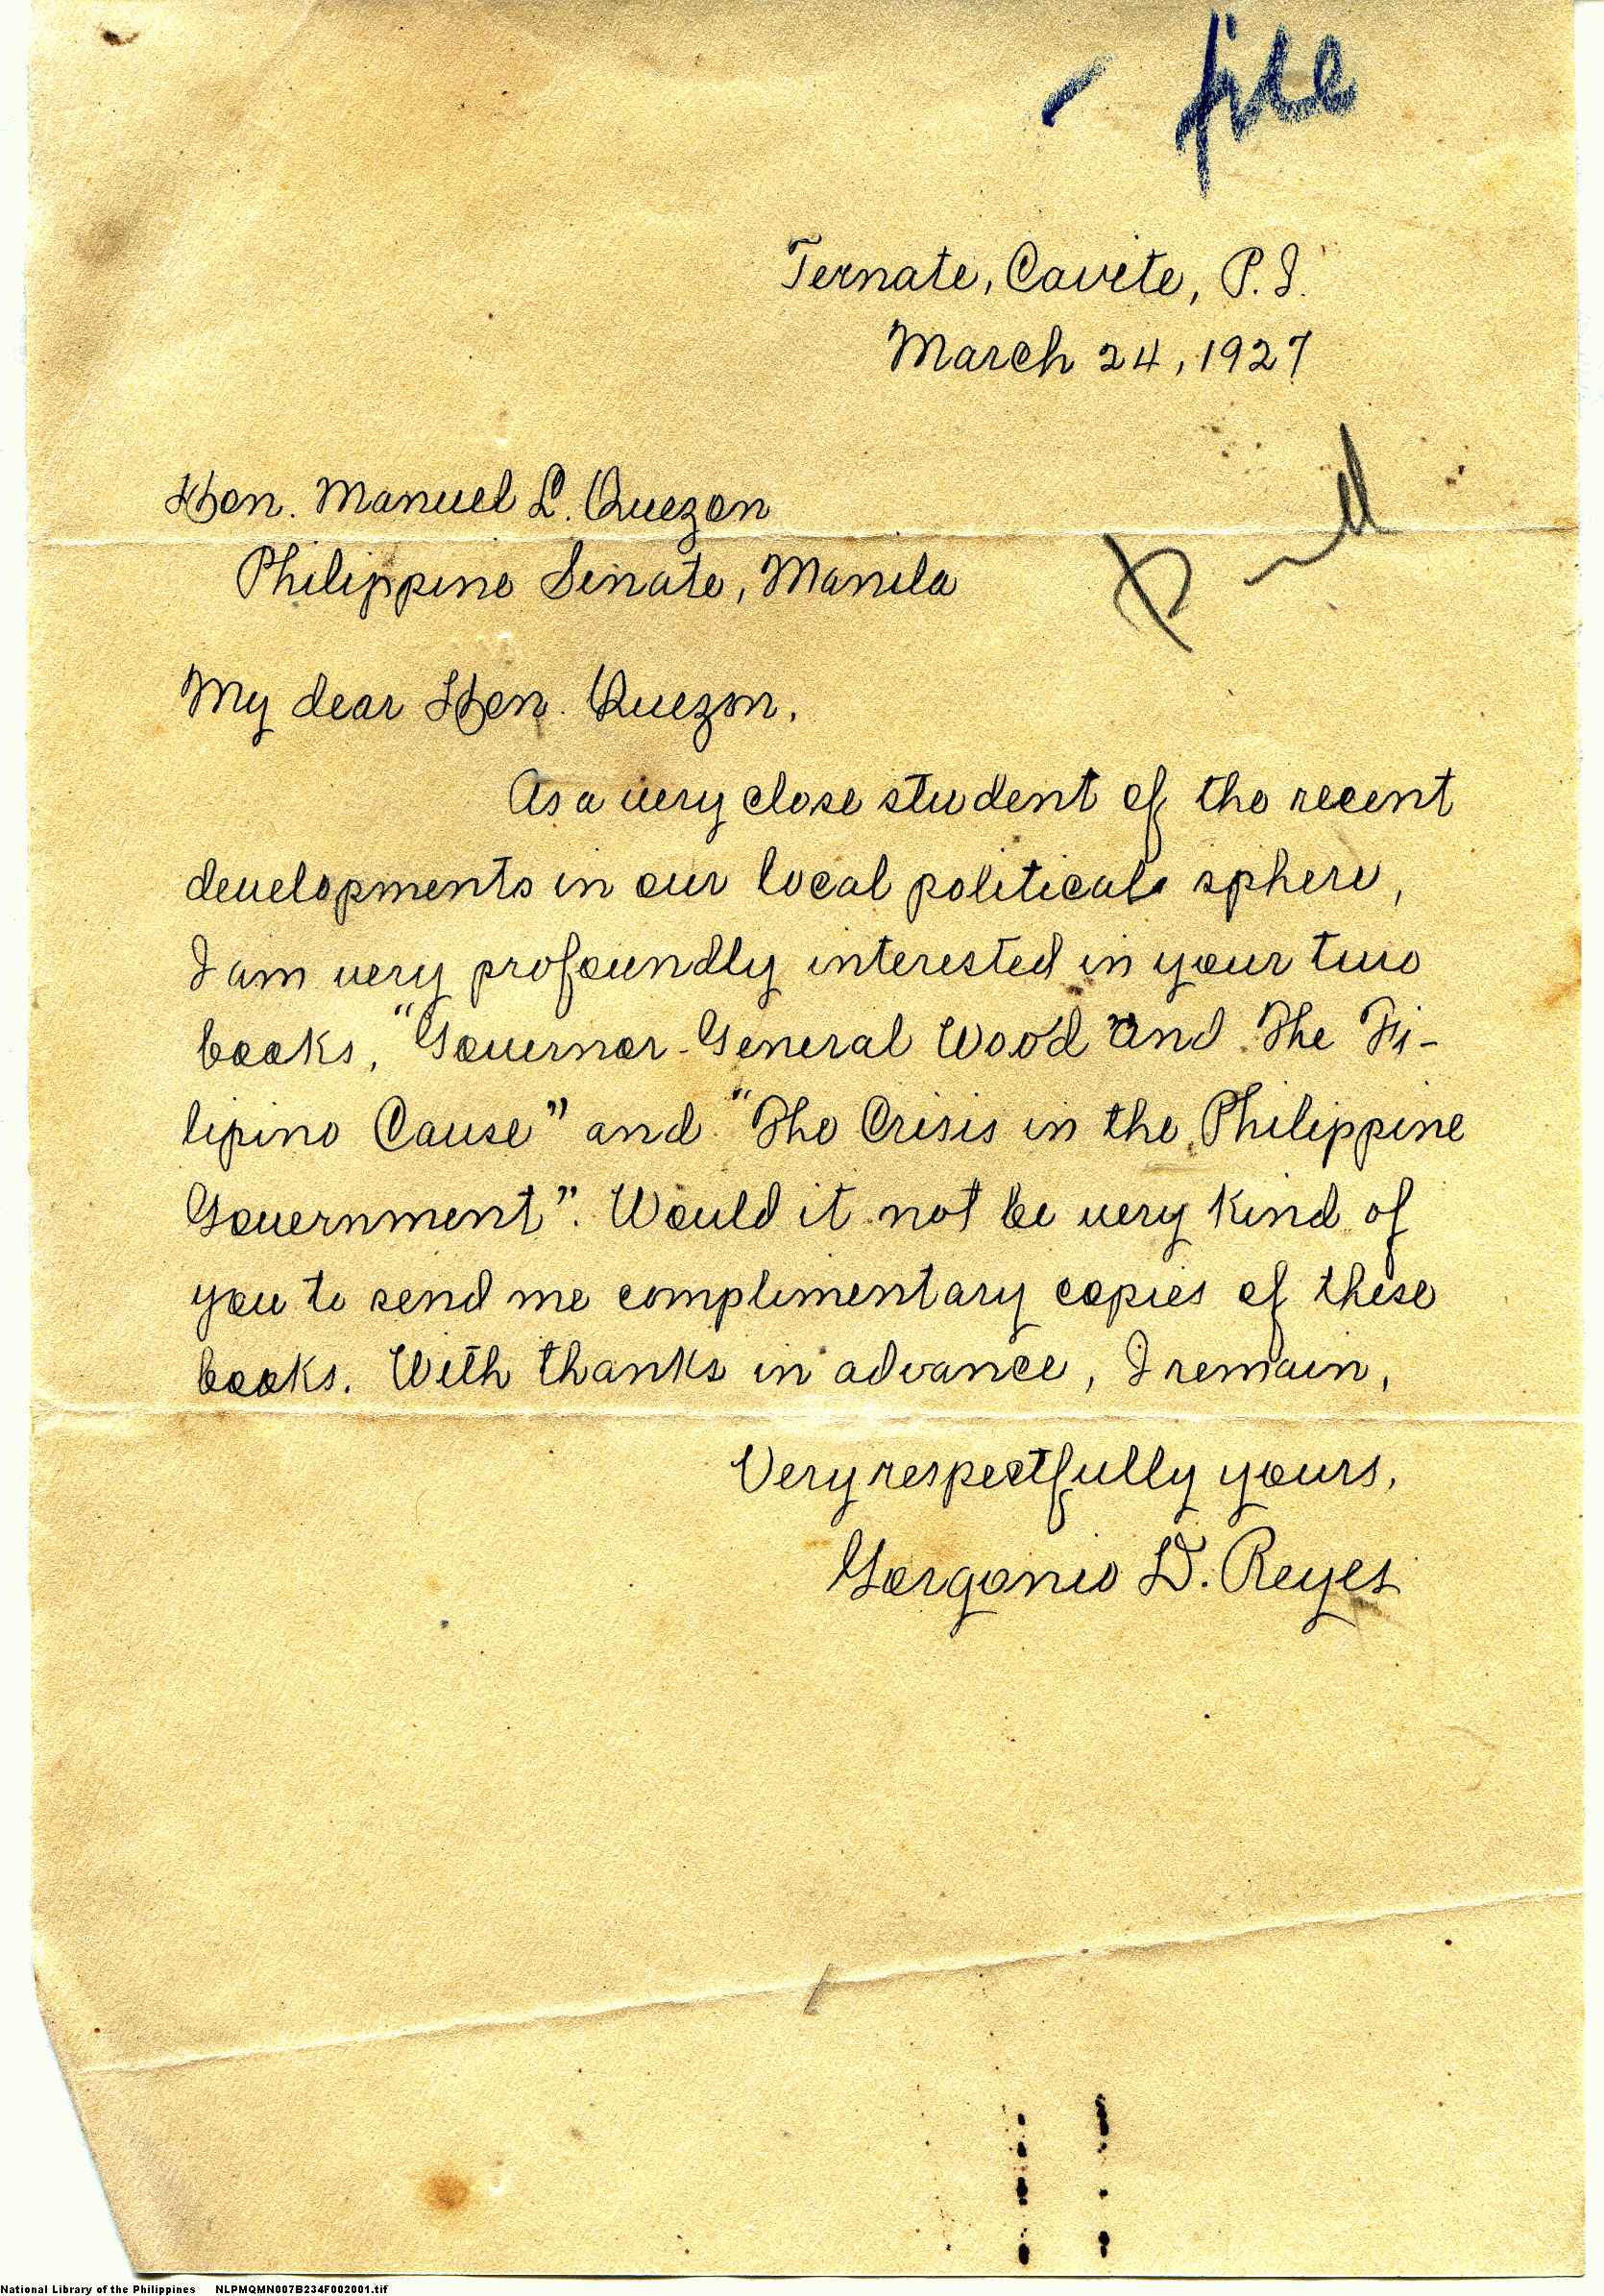 file
Ternate, Cavite, P. I.
March 24, 1927
Hon. Manuel L. Quezon
Philippine Senate, Manila
My dear Hon. Quezon.
As a very close student of the recent
developments in our local political sphere,
I am very profoundly interested in your two
books, "Governor-General Wood and The Fi-
lipino Cause" and "The Crisis in the Philippine
Government". Would it not be very kind of
you to send me complimentary copies of these
books. With thanks in advance, I remain,
Very respectfully yours,
Gorgonio D. Reyes
National Library of the Philippines NLPMQMN007B234F002001.tif